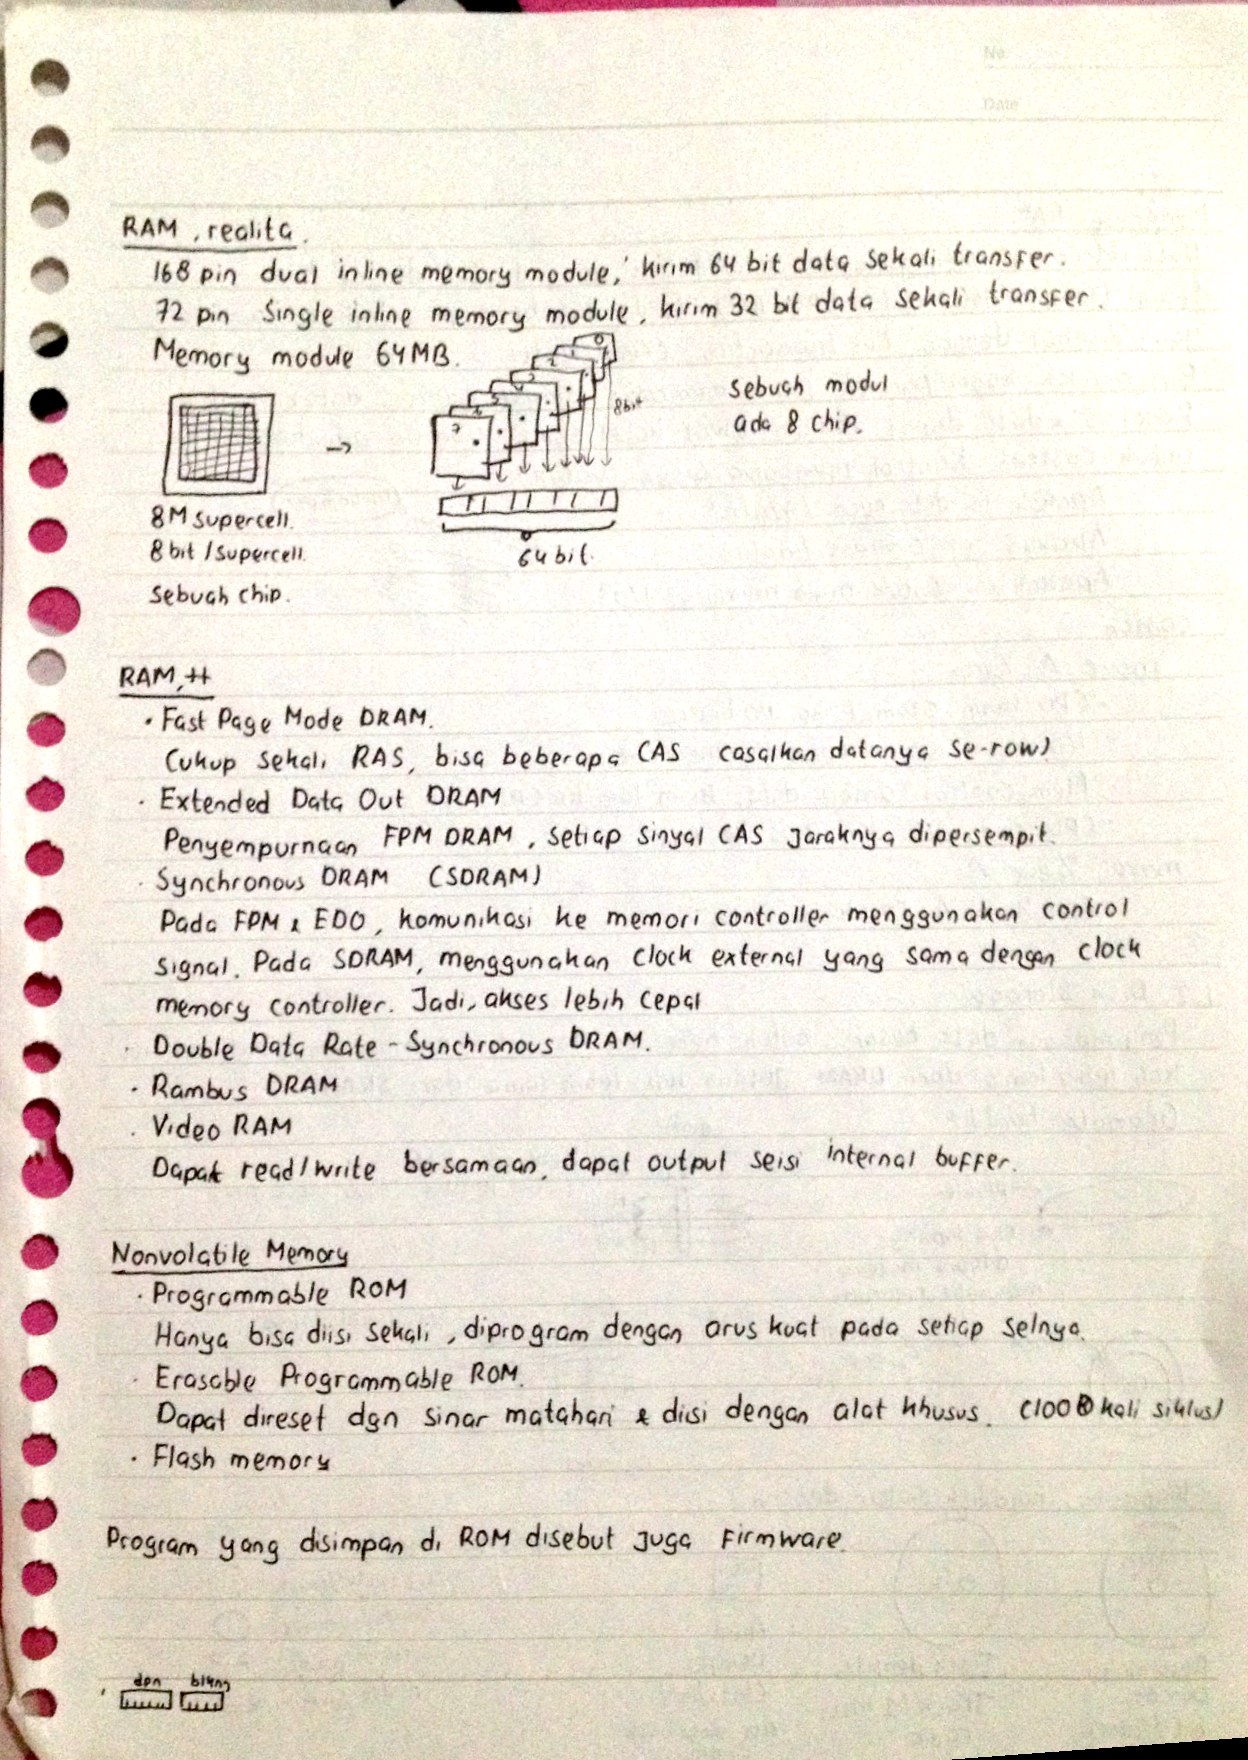 No.
Date
RAM, realita.
168 pin dual inline memory module, kirim 64 bit data sekali transfer.
72 pin single inline memory module, kirim 32 bit data sekali transfer.
Memory module 64MB.
0
7
8bit
→
sebuah modul
ada 8 chip.
8M supercell.
8 bit / supercell.
sebuah chip.
64 bit.
RAM, ++
• Fast Page Mode DRAM.
Cukup sekali RAS, bisa beberapa CAS (asalkan datanya se-row)
• Extended Data Out DRAM
Penyempurnaan FPM DRAM, setiap sinyal CAS jaraknya dipersempit.
• Synchronous DRAM (SDRAM)
Pada FPM & EDO, komunikasi ke memori controller menggunakan control
signal. Pada SDRAM, menggunakan clock external yang sama dengan clock
memory controller. Jadi, akses lebih cepat
• Double Data Rate - Synchronous DRAM.
• Rambus DRAM
• Video RAM
Dapat read/write bersamaan, dapat output seisi internal buffer.
Nonvolatile Memory
• Programmable ROM
Hanya bisa diisi sekali, diprogram dengan arus kuat pada setiap selnya.
• Erasable Programmable ROM.
Dapat direset dgn sinar matahari & diisi dengan alat khusus. (1000 kali siklus)
• Flash memory
Program yang disimpan di ROM disebut juga firmware.
dpn blkng